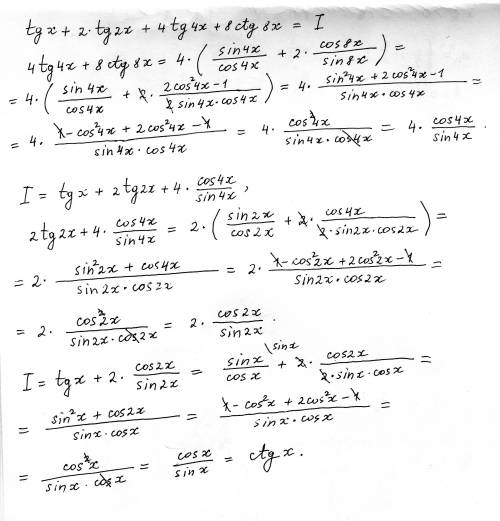 tg x + 2·tg2x + 4tg4x + 8ctg8x = I
4tg4x + 8ctg8x = 4·(sin4x/cos4x + 2·cos8x/sin8x) =
= 4·(sin4x/cos4x + 2·(2cos²4x-1)/(2sin4x·cos4x)) = 4·(sin²4x + 2cos²4x-1)/(sin4x·cos4x) =
= 4·(1-cos²4x + 2cos²4x-1)/(sin4x·cos4x) = 4·cos²4x/(sin4x·cos4x) = 4·cos4x/sin4x.
I = tgx + 2tg2x + 4·cos4x/sin4x,
2tg2x + 4·cos4x/sin4x = 2·(sin2x/cos2x + 2·cos4x/(2·sin2x·cos2x)) =
= 2·(sin²2x + cos4x)/(sin2x·cos2x) = 2·(1-cos²2x + 2cos²2x-1)/(sin2x·cos2x) =
= 2·cos²2x/(sin2x·cos2x) = 2·cos2x/sin2x.
I = tgx + 2·cos2x/sin2x = sinx/cosx \sinx + 2·cos2x/(2·sinx·cosx) =
= (sin²x + cos2x)/(sinx·cosx) = (1-cos²x + 2cos²x-1)/(sinx·cosx) =
= cos²x/(sinx·cosx) = cosx/sinx = ctgx.